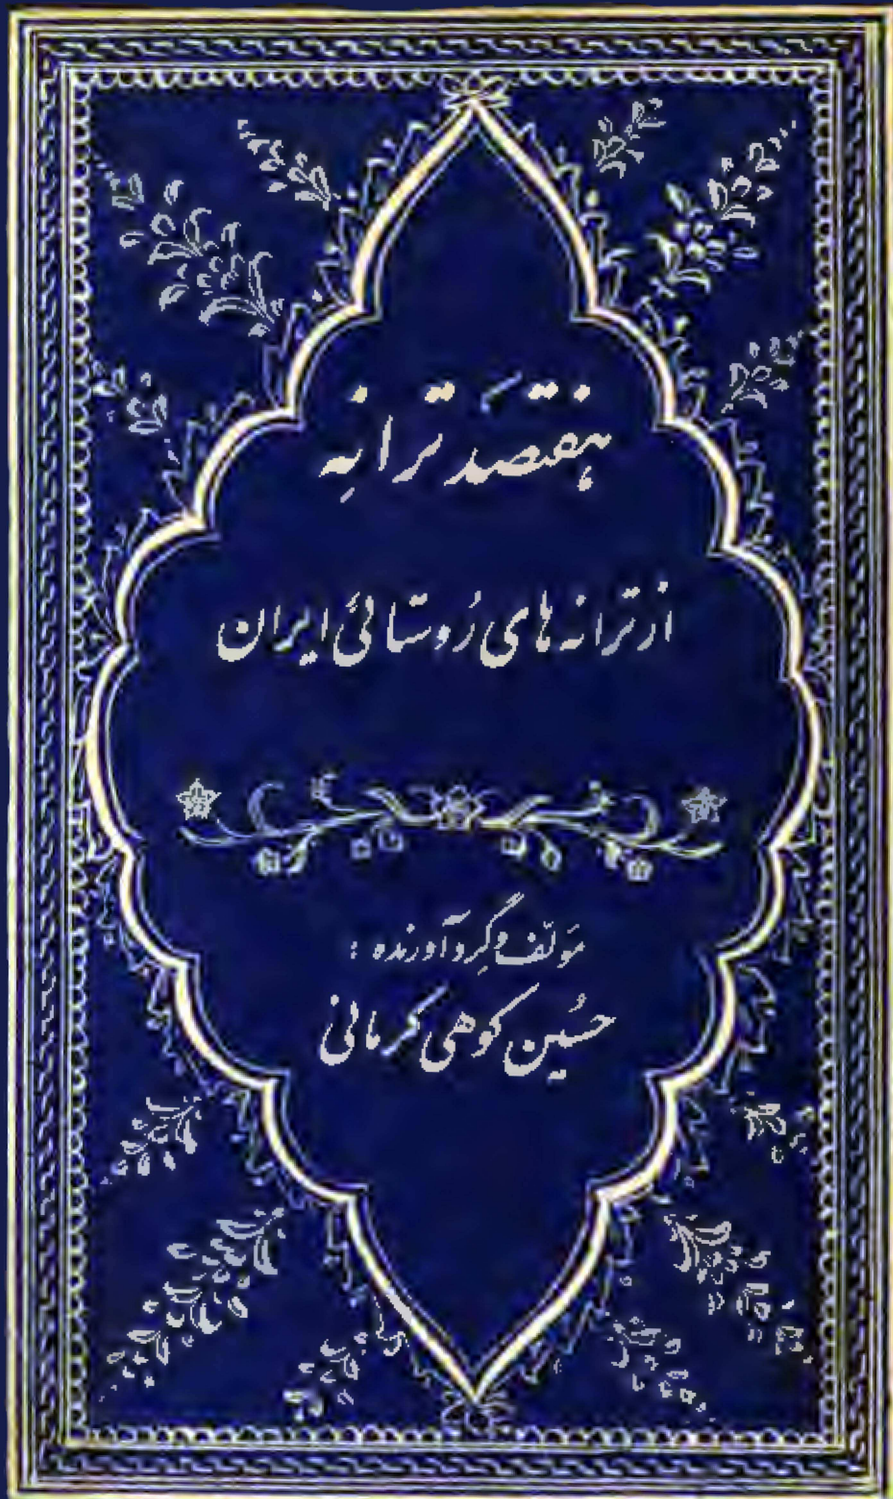 هفتصد ترانه
از ترانه های روستائی ایران
مؤلف و گردآورنده :
حسین کوهی کرمانی